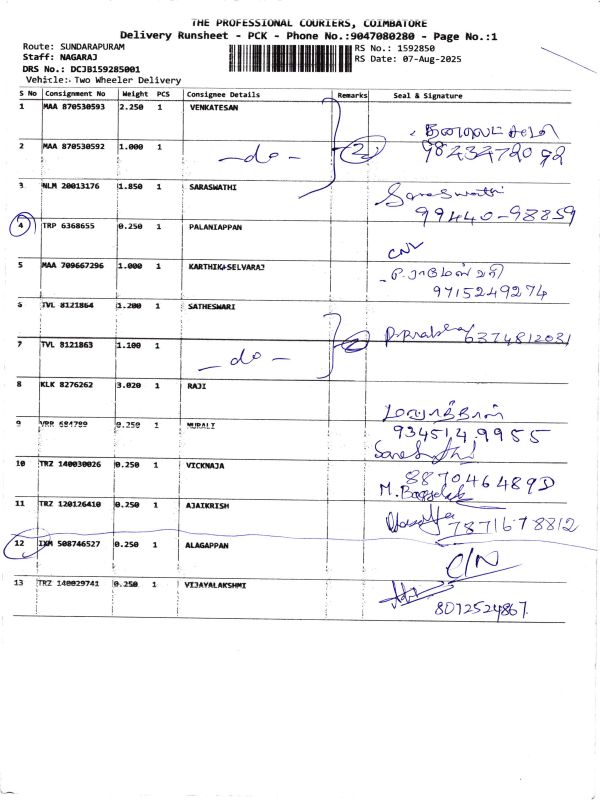 THE PROFESSIONAL COURIERS, COIMBATORE
Delivery Runsheet - PCK - Phone No.:9047080280 - Page No.:1
Route: SUNDARAPURAM RS No.: 1592850
Staff: NAGARAJ RS Date: 07-Aug-2025
DRS No.: DCJB159285001
Vehicle: Two Wheeler Delivery
S No Consignment No Weight PCS Consignee Details Remarks Seal & Signature
1 MAA 870530593 2.250 1 VENKATESAN
2 MAA 870530592 1.000 1 -do- 2 9843472092
3 NLM 20013176 1.850 1 SARASWATHI Saraswathi
99440-98859
4 TRP 6368655 0.250 1 PALANIAPPAN
5 MAA 709667296 1.000 1 KARTHIK+SELVARAJ
9715249274
6 TVL 8121864 1.200 1 SATHESWARI
6374812031
7 TVL 8121863 1.100 1 -do- 2
8 KLK 8276262 3.020 1 RAJI
9 VRR 684789 0.250 1 MURALI 9345149955
10 TRZ 140030026 0.250 1 VICKNAJA
11 TRZ 120126410 0.250 1 AJAIKRISH
7871678812
12 IXM 508746527 0.250 1 ALAGAPPAN C/N
13 TRZ 140029741 0.250 1 VIJAYALAKSHMI
8072524867